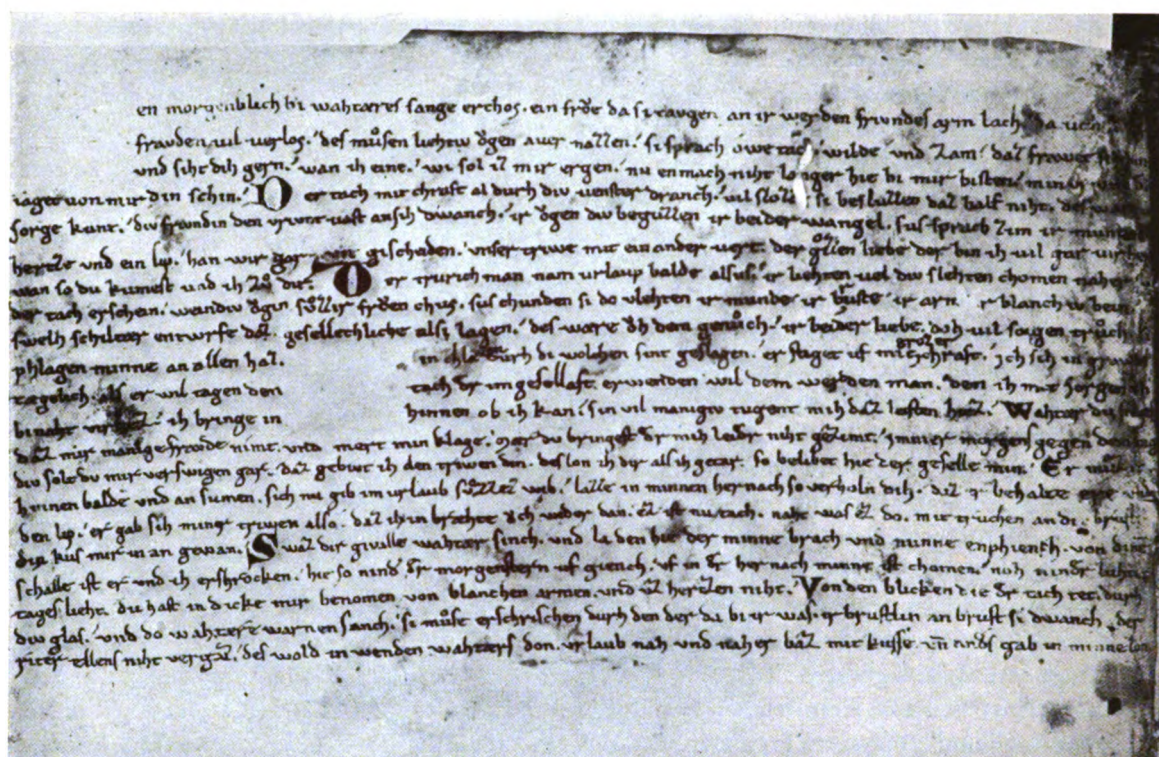 en morgenblich bi wahtæres sange erchos. ein frŏe da si tavgen an ir werden frivndes arm lach. da von
fravden vil verlos. des mvͦsen liehtiv ŏgen aver nazzen. si sprach owe tach. wilde vnd zam. daz frævet
vnd siht dih gern. wan ih eine. wi sol iz mir ergen. nu en mach niht langer hie bi mir bisten. min
iaget von mir din schin. D er tach mit chraft al dvrh div venster dranch. vil sloze si beslvzzen daz half niht. des wart
sorge kunt. div frivndin den vrivnt vast an sih dwanch. ir ŏgen div begvzzen ir beider wangel. sus sprach zim ir munt
hertze vnd ein lip. han wir gar gischeden. vnser triwe mit ein ander vert. der grŏzzen liebe der bin ih vil gar
wan so du kumest vnd ih zvͦ dir. D er trvrich man nam vrlaup balde alsus. ir liehten vel div slehten chomen naher
der tach erschein. weindiv ŏgin sŭzzir frŏen chus. sus chunden si do vlehten ir munde ir bruste ir arm ir blanchiv bein
swelh schiltær entwrfe daz. gesellechliche als si lagen. des wære ŏh dem genvͦch. ir beider liebe. doh vil sorgen trvͦch
phlagen minne an allen haz. in chla durh di wolchen sint geslagen. er stiget vf mit grozer chraft. ich sih in
tagelich als er wil tagen den tach der im gesellaft. erwenden wil dem werden man. den ih mit sorgen
bi naht ih bringe in hinnen ob ih kan. sin vil manigiv tugent mih daz leisten hiez. Wahtær du
daz mir manige frevde nimt. vnd mert min klage. mær du bringest der mih leider niht gezimt. immer morgens gegen
div solt du mir verswigen gar. daz gebiut ih den triwen din. des lon ih dir als ih getar. so belibet hie der geselle min. Er mvͦz
hinnen balde vnd an sumen. sich nu gib im vrlaub sŭzzez wib. lazze in minnen her nach so verholn dih. daz er behalte ere vnd
den lip. er gab sih miner triwen also. daz ih in bræhte ŏch wider dan. ez ist nu tach. naht was ez do. mit truchen an di brust
din kus mir in an gewan. S waz dir givalle wahtær sinch. vnd la den hie der minne brach vnd minne enphiench. von dinem
schalle ist er vnd ih erschrocken. hie so ninder der morgenstern vf giench. vf in der her nach minne ist chomen. noh ninder luhte
tages lieht. du hast in dicke mir benomen von blanchen armen. vnd vz hertzen niht. Von den blicken die der tach tet. durh
div glas. vnd do wahtære warnen sanch. si mvͦse erschrichen durh den der da bi ir was. ir brustlin an brust si dwanch. der
riter ellens niht vergaz. des wold in wenden wahtærs don. vrlaub nah vnd naher baz mit kusse vñ anders gab in minne lon